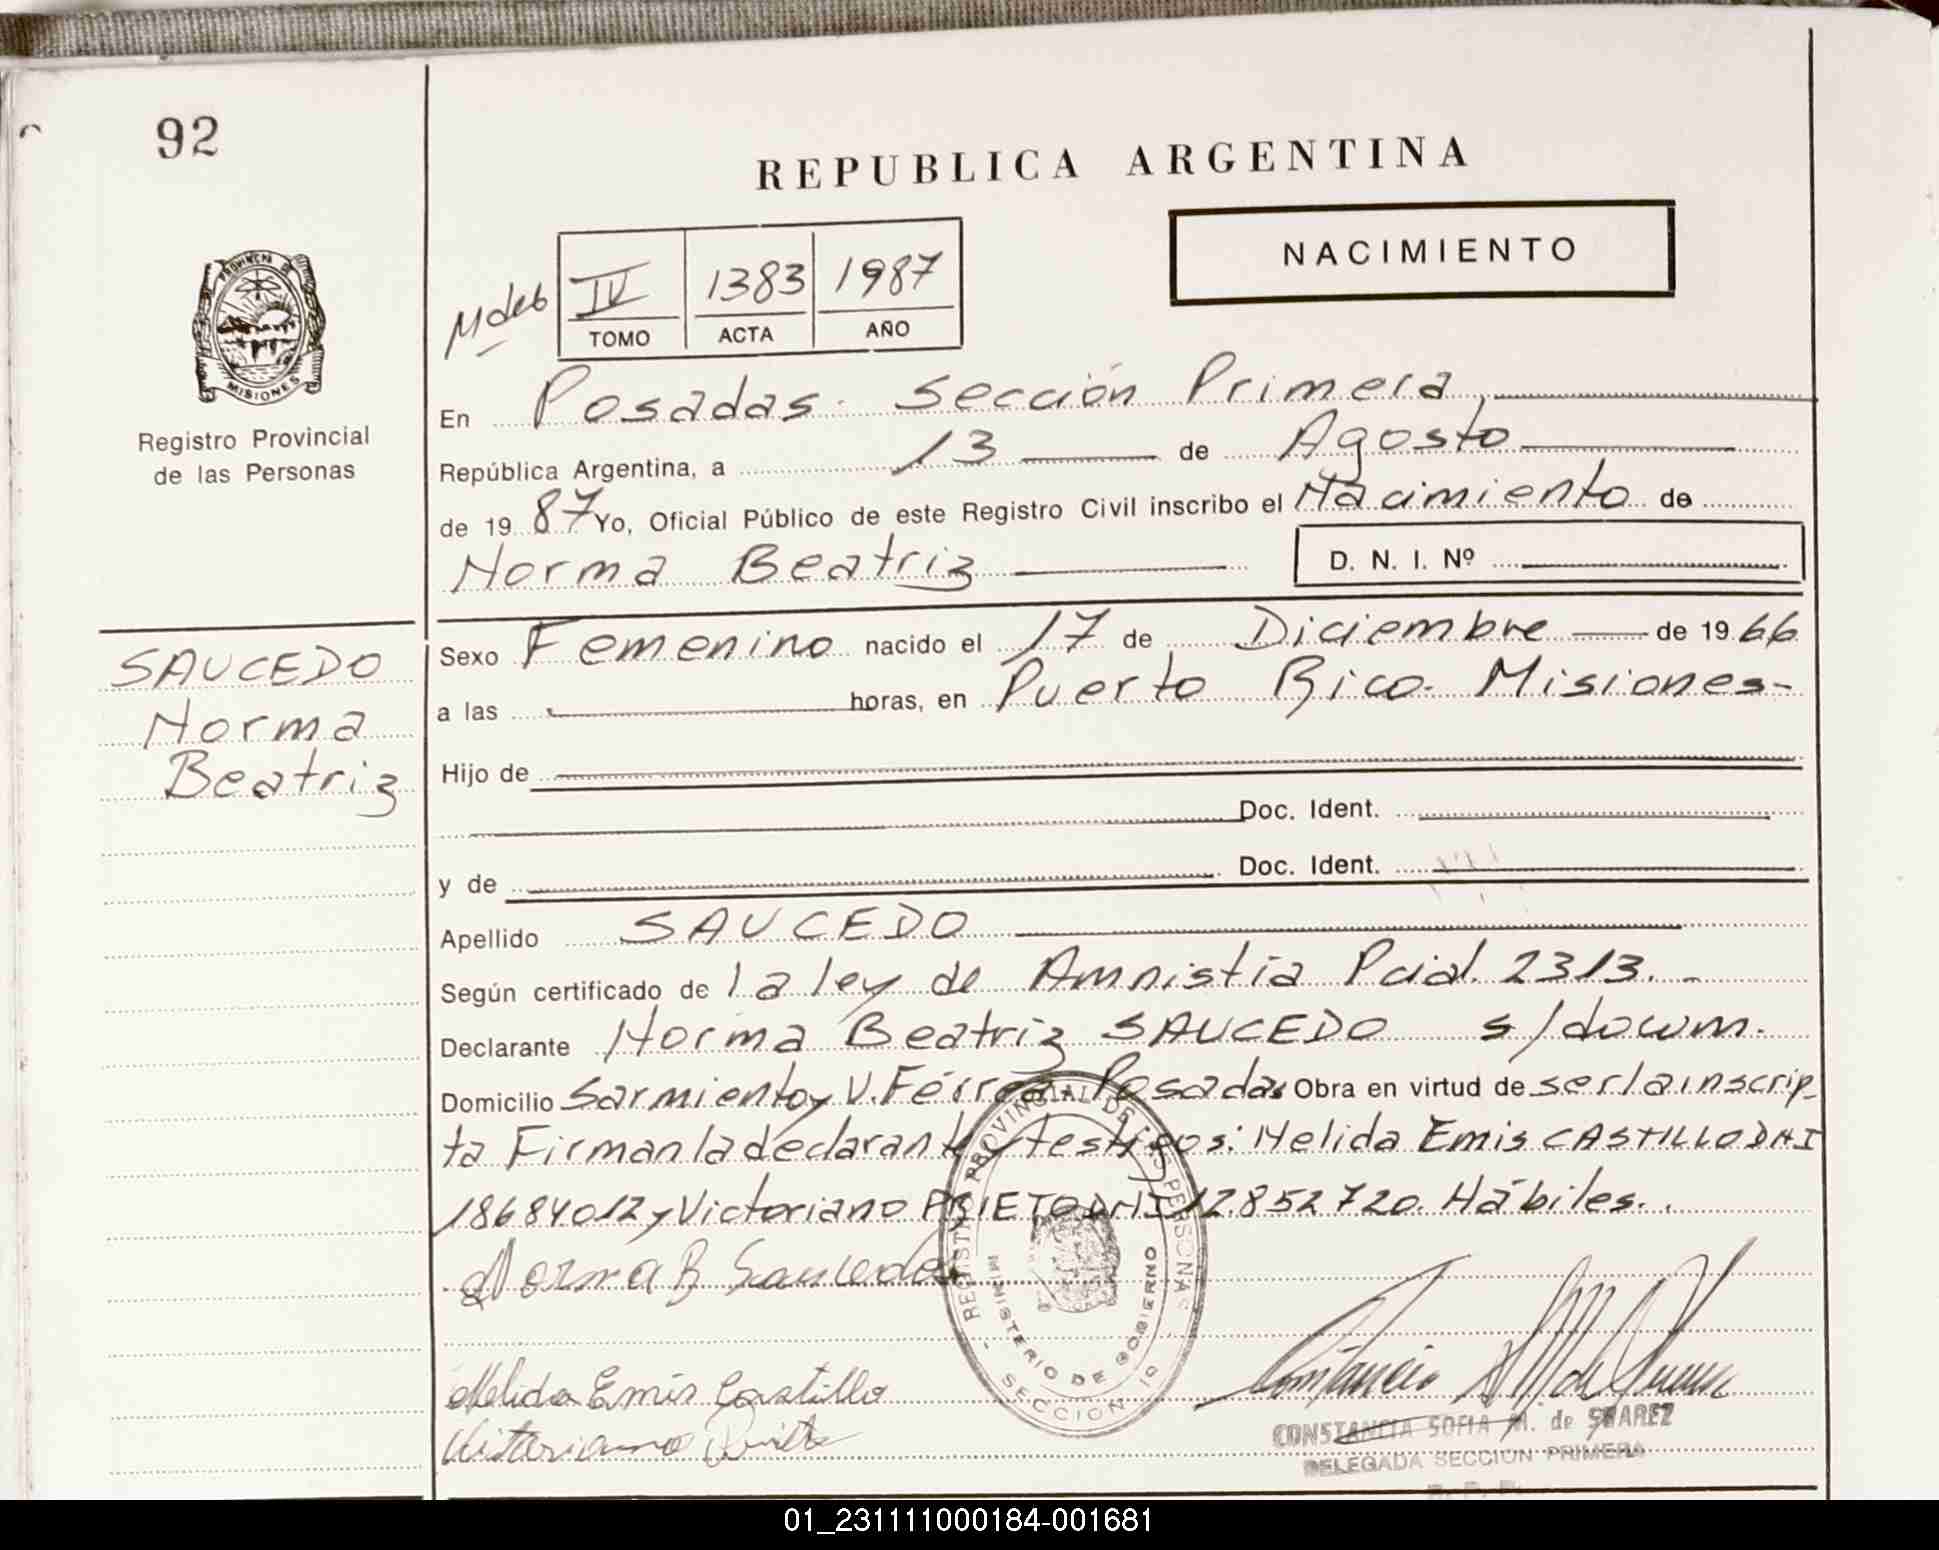 92
REPUBLICA ARGENTINA
NACIMIENTO
IV 1383 1987
TOMO ACTA AÑO
PROVINCIA DE MISIONES
Registro Provincial
de las Personas
En Posadas. Sección Primera,
República Argentina, a 13 de Agosto
de 1987 Yo, Oficial Público de este Registro Civil inscribo el Nacimiento de
Norma Beatriz D. N. I. Nº
SAUCEDO
Norma
Beatriz
Sexo Femenino nacido el 17 de Diciembre de 1966
a las horas, en Puerto Rico. Misiones-
Hijo de
Doc. Ident.
y de Doc. Ident.
Apellido SAUCEDO
Según certificado de la ley de Amnistía Pcial. 2313.-
Declarante Norma Beatriz SAUCEDO s/docum.
Domicilio Sarmiento y V. Férrea Posadas Obra en virtud de ser la inscrip-
ta Firman la declarante y testigos: Nelida Emis CASTILLO DNI
18684012 y Victoriano PRIETO DNI 12.852720. Hábiles.
Norma B Saucedo
REGISTRO PROVINCIAL DE LAS PERSONAS
MINISTERIO DE GOBIERNO
SECCION 1º
Nelida Emis Castillo
Victoriano Prieto
CONSTANCIA SOFIA M. de SUAREZ
DELEGADA SECCION PRIMERA
R. P. P.
01_231111000184-001681